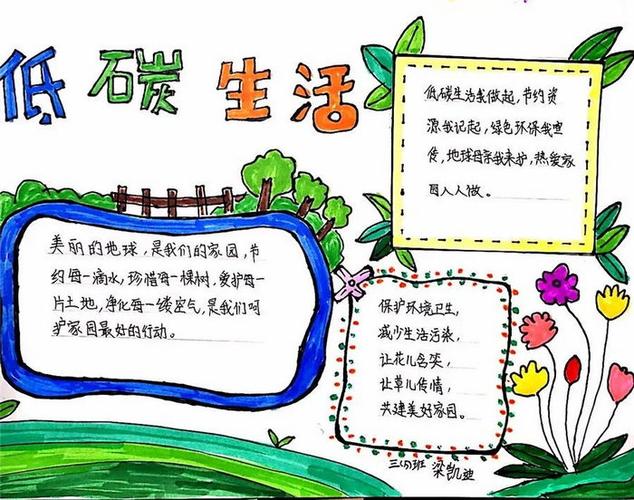 低碳生活
低碳生活我做起,节约资
源我记起,绿色环保我宣
传,地球母亲我来护,热爱家
园人人做。
美丽的地球,是我们的家园,节
约每一滴水,珍惜每一棵树,爱护每一
片土地,净化每一缕空气,是我们呵
护家园最好的行动。
保护环境卫生,
减少生活污染,
让花儿含笑,
让草儿传情,
共建美好家园。
三(4)班 梁凯迪